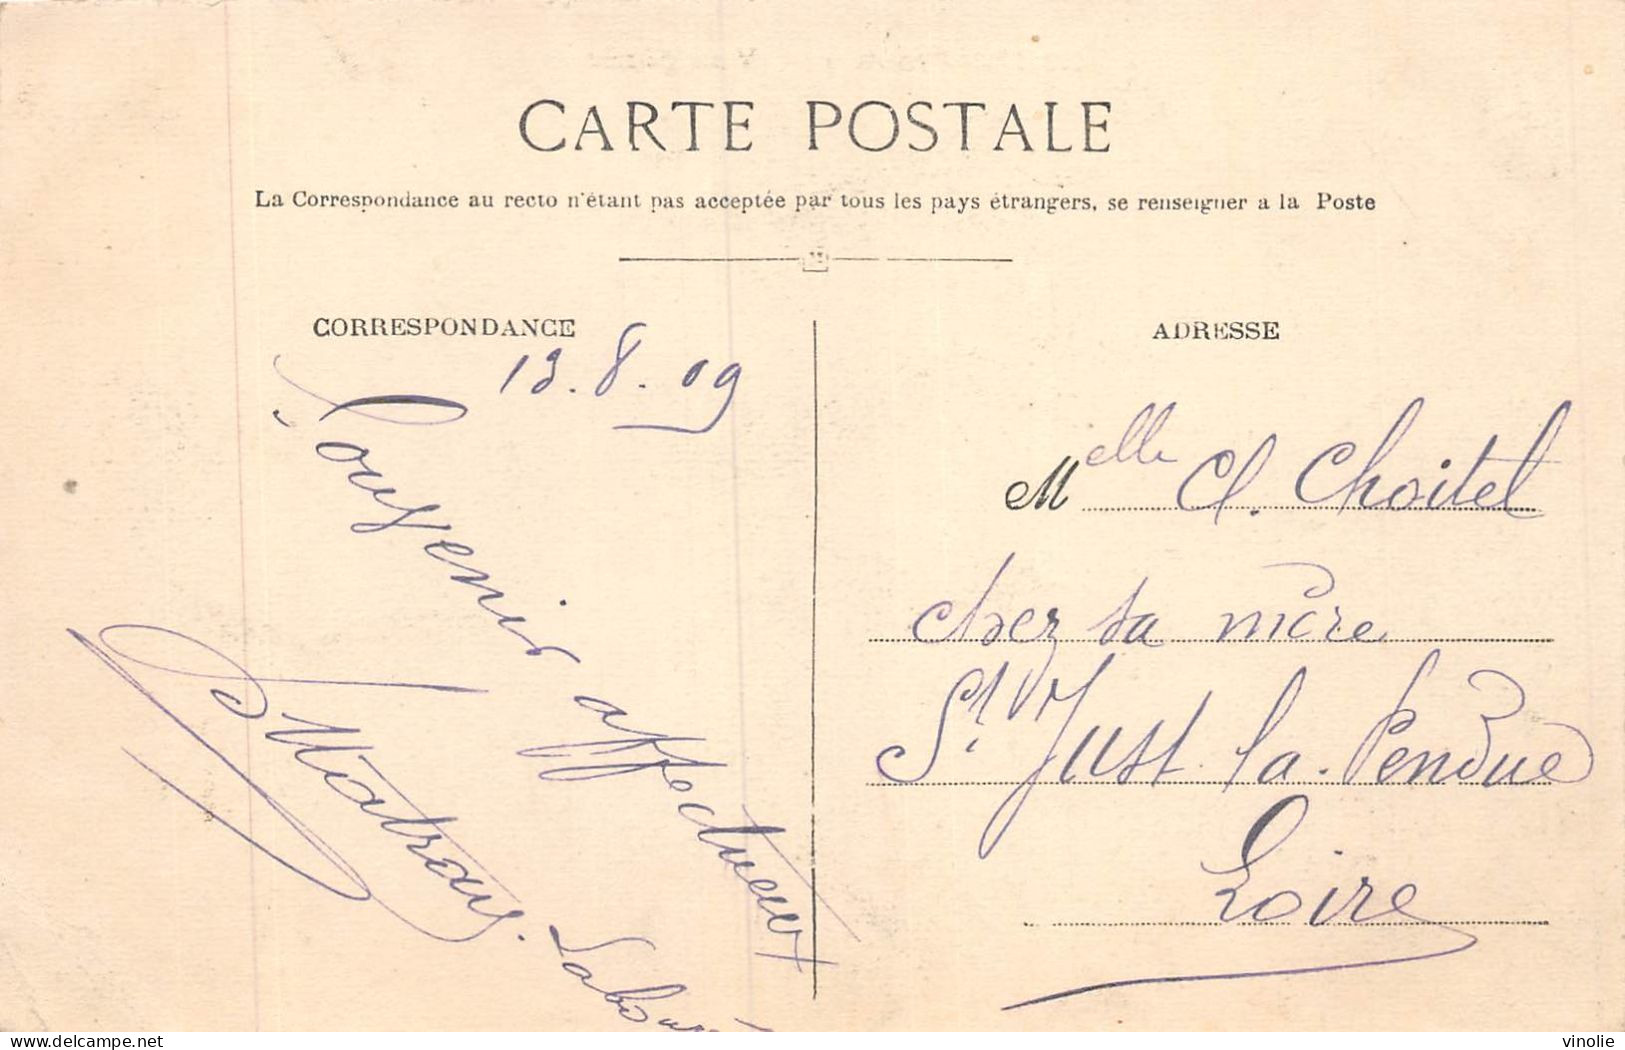 CARTE POSTALE
La Correspondance au recto n'étant pas acceptée par tous les pays étrangers, se renseigner a la Poste
CORRESPONDANCE
13.8.09
Souvenir affectueux
ADRESSE
Melle Cl. Choitel
chez sa mère
St Just la Pendue
Loire
delcampe.net
vinolie